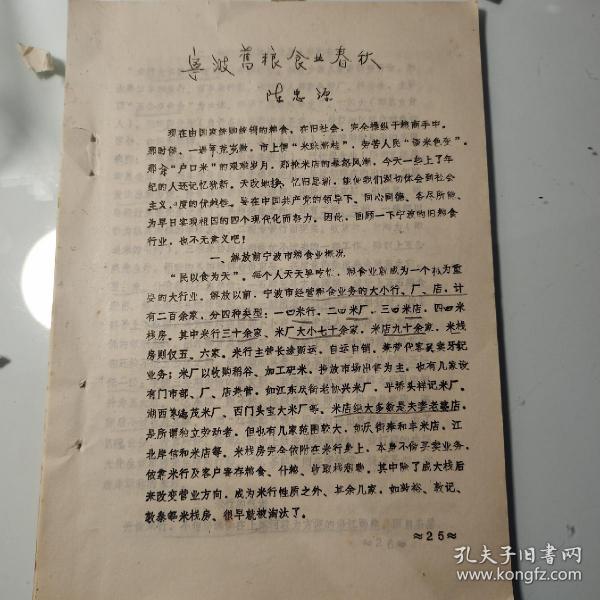 宁波旧粮食业春秋
陈忠源
现在由国家统购统销的粮食，在旧社会，完全操纵于粮商手中。
那时候，一遇年荒岁歉，市上便“米珠薪桂”，劳苦人民“谈米色变”。
那含“户口米”的艰难岁月，那抢米店的暴怒风潮，今天一些上了年
纪的人还记忆犹新。天改地换，忆旧思新，能使我们深切体会到社会
主义制度的优越性。要在中国共产党的领导下、同心同德、各尽所能、
为早日实现祖国的四个现代化而努力。因此，回顾一下宁波的旧粮食
行业，也不无意义吧！
一、解放前宁波市粮食业概况
“民以食为天”。每个人天天要吃饭，粮食业就成为一个极为重
要的大行业。解放以前，宁波市经营粮食业务的大小行、厂、店，计
有二百余家，分四种类型：一曰米行，二曰米厂，三曰米店，四曰米
栈房。其中米行三十余家、米厂大小七十余家，米店九十余家，米栈
房则仅五、六家。米行主营长途贩运，自运自销，兼营代客买卖牙纪
业务；米厂以收购稻谷、加工砻米，抄放市场出售为主，也有几家设
有门市部、厂、店兼营，如江东后街老协兴米厂，平桥头祥记米厂，
湖西 茂米厂、西门头宝大米厂等。米店绝大多数是夫妻老婆店，
是所谓独立劳动者。但也有几家范围较大，如后街泰和丰米店，江
北岸信和米店等。米栈房完全依附在米行身上，本身不做买卖业务，
依靠米行及客户寄存粮食、什粮，收取栈租。其中除了成大栈后
来改变营业方向，成为米行性质之外、其余几家，如 裕、敦记、
敦泰等米栈房、很早就被淘汰了。
≈25≈
孔夫子旧书网
www.kongfz.com